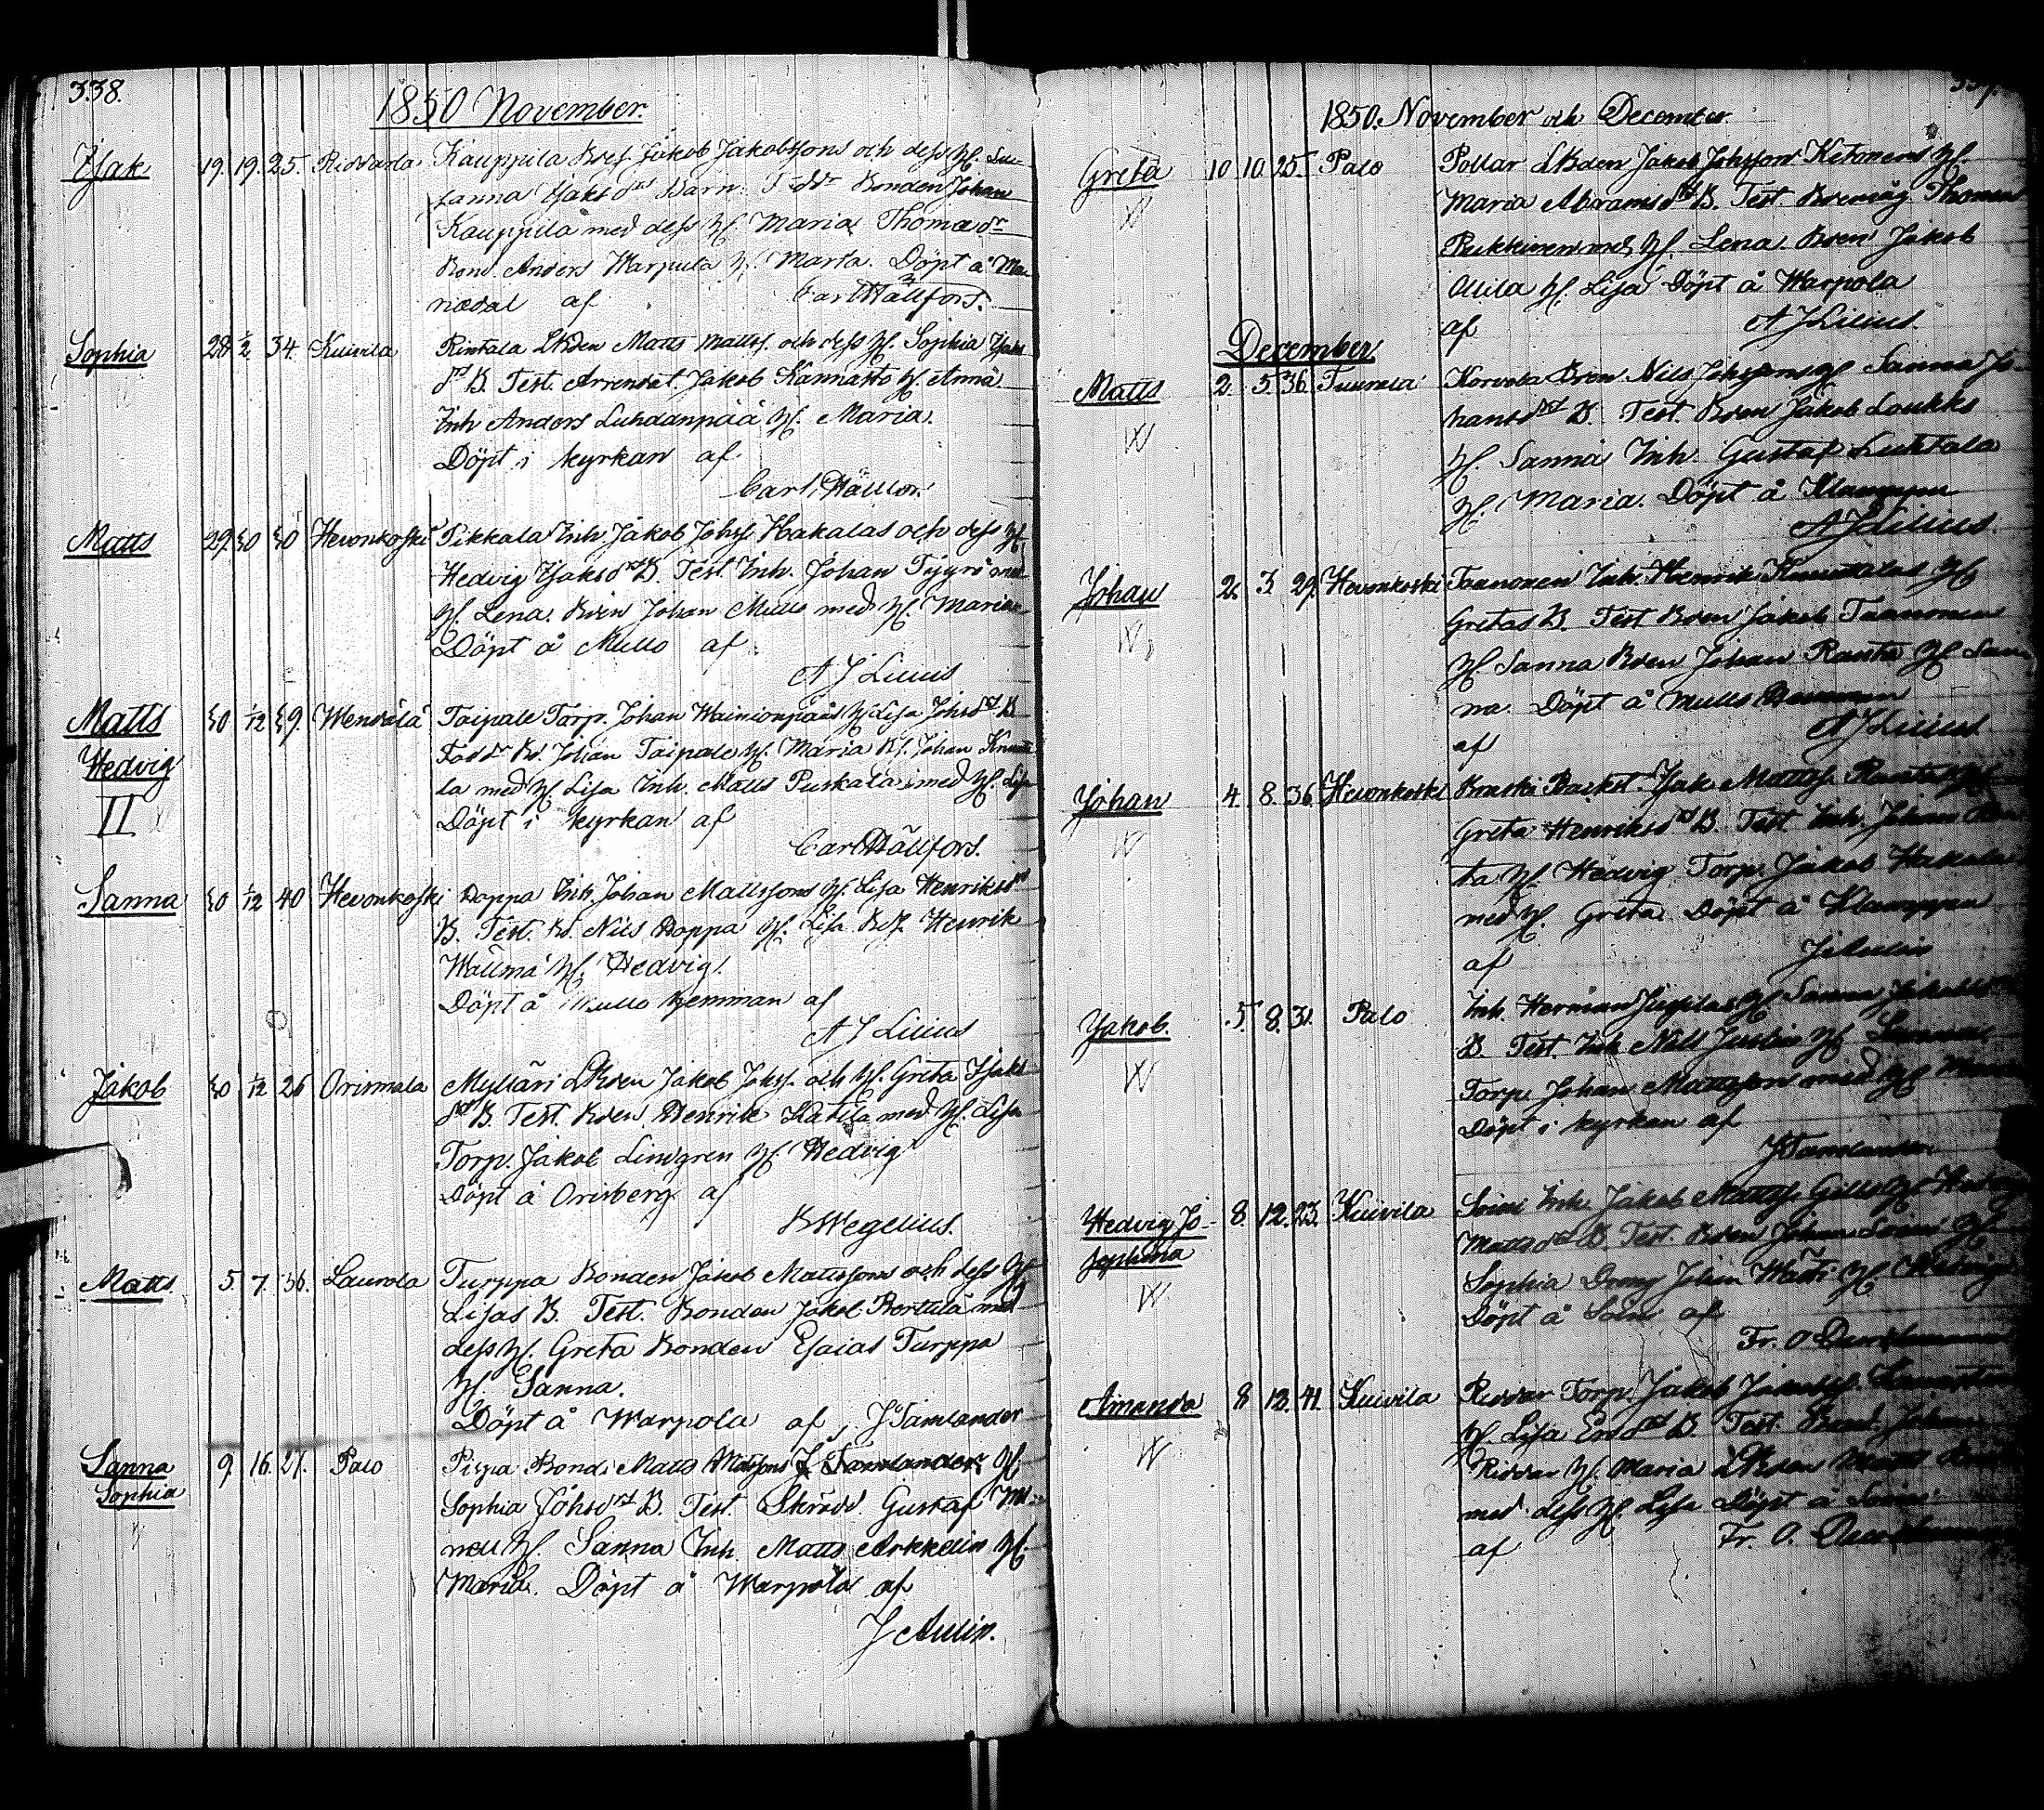 338.
1850 November.
Isak 19. 19. 25. Kauppila Bds. Jakob Jakobssons och dess H.
sanna Isaksdrs Barn. Fadd. Bonden Johan
Kauppila med dess H. Maria Thomasdr
Bond. Anders Warpula H. Maria. Döpt å Ma-
riedal af Carl Hällfors.
Sophia 28 1/2 34. Kuivila Rintala LBden Matts Matts. och dess H. Sophia Isaks
drs B. Test. Arrendat. Jakob Kannasto H. Anna
Inh Anders Luhdanpää H. Maria.
Döpt i kyrkan af
Carl Hällfor.
Matts 29. 30 30 Hevonkoski Pikkala Inh. Jakob Johss. Hakalas och dess H.
Hedvig Isaksdrs B. Test. Inh. Johan Tyyrö med
H. Lena. Bden Johan Mullo med H. Maria
Döpt å Mullo af
A J Lilius
Matts 30 1/12 39. Wendälä Taipale Torp. Johan Wainionpääs H. Lisa Johsdrs B
Hedvig Fadd. Bd. Johan Taipale H. Maria Bs. Johan Knuuti
II la med H. Lisa Inh. Matts Puskala med H. Lisa
Döpt i kyrkan af
Carl Hällfors.
Sanna 30 1/12 40 Hevonkoski Poppa Inh. Johan Mattssons H. Lisa Henriksdrs
B. Test. Bd. Nils Poppa H. Lisa Bds. Henrik
Wallma H. Hedvig.
Döpt å Mullo hemman af
A J Lilius
Jakob 30 1/12 26 Orismala Mylläri LBden Jakob Johss. och H. Greta Isaks
drs B. Test. Bden Henrik Katila med H. Lisa
Torp. Jakob Lindgren H. Hedvig
Döpt å Orisberg af
B Wegelius.
Matts 5. 7. 36. Laurola Turppa Bonden Jakob Mattssons och dess H.
Lisas B. Test. Bonden Jakob Perttulä med
dess H. Greta Bonden Esaias Turppa
H. Sanna.
Döpt å Warpola af J Tamlander
Sanna 9. 16. 27. Palo Pispa Bond. Matts Matssons J Tamlander H.
Sophia Sophia Johsdrs B. Test. Skrädd. Gustaf
H. Sanna Inh. Matts Arkkelin H.
Maria. Döpt å Warpola af
J Aulin.
1850. November och December.
Greta 10 10. 25. Palo Pollar LBden Jakob Johsson Ketonens H.
Maria Abramsdrs B. Test. Thomas
Pukkinen med H. Lena. Bden Jakob
Ollila H. Lisa Döpt å Warpola
af A J Lilius.
December
Matts 2. 5. 36. Tuurala Korvola Bden Nils Johssons H. Sanna Jo-
hansdrs B. Test. Bden Jakob Loukko
H. Sanna Inh. Gustaf Luhtala
H. Maria. Döpt å
A J Lilius.
Johan 2. 3. 29. Hevonkoski Taanonen Inh. Henrik Knuutilas H.
Gretas B. Test. Bden Jakob Taanonen
H. Sanna Bden Johan Ranta H. San
na. Döpt å Mullo
af A J Lilius
Johan 4. 8. 36. Hevonkoski Isak Mattss. Rantas H.
Greta Henriksdrs B. Test. Inh. Johan Ran
ta H. Hedvig Torp. Jakob Hakala
med H. Greta Döpt å Klemppa
af J Aulin
Jakob. 5. 8. 31. Palo Inh. Herman H. Sanna Jakobs
B. Test. Inh. Nils H. Sanna
Torp. Johan Mattsson med H. Maria
Döpt i kyrkan af
J Tamlander
Hedvig Jo- 8. 12. 23. Kuivila Soini Inh. Jakob Mattss. H. Hedvig
sephina Mattsdrs B. Test. Bden Johan Soini H.
Sophia Johan H. Hedvig
Döpt å Soini af
Fr. O.
Amanda 8 12. 41. Kuivila Riddar Torp. Jakob
H. Lisa B. Test. Johan
Riddar H. Maria LBden Matts
med dess H. Lisa Döpt å Soini
af Fr. O.